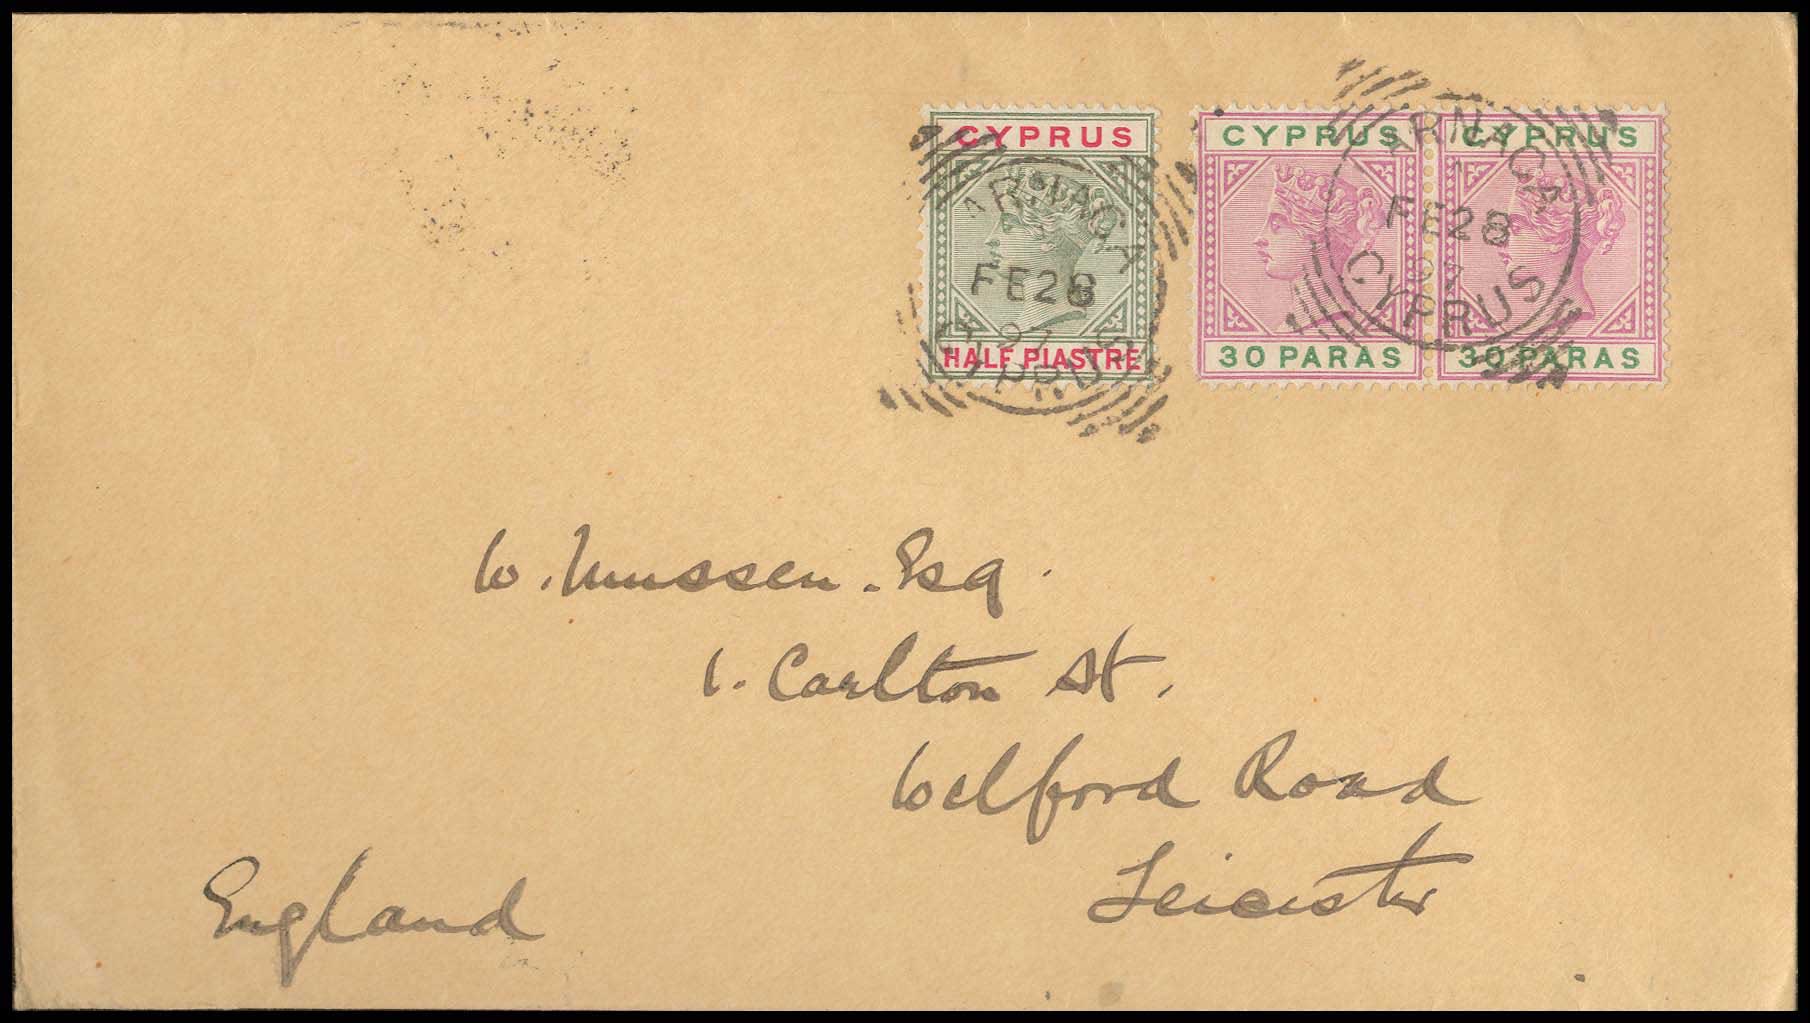 CYPRUS
HALF PIASTRE
CYPRUS
30 PARAS
CYPRUS
30 PARAS
LARNACA
FE 28
97
CYPRUS
LARNACA
FE 28
97
CYPRUS
W. Mussen. Esq.
1. Carlton St.
Welford Road
Leicester
England